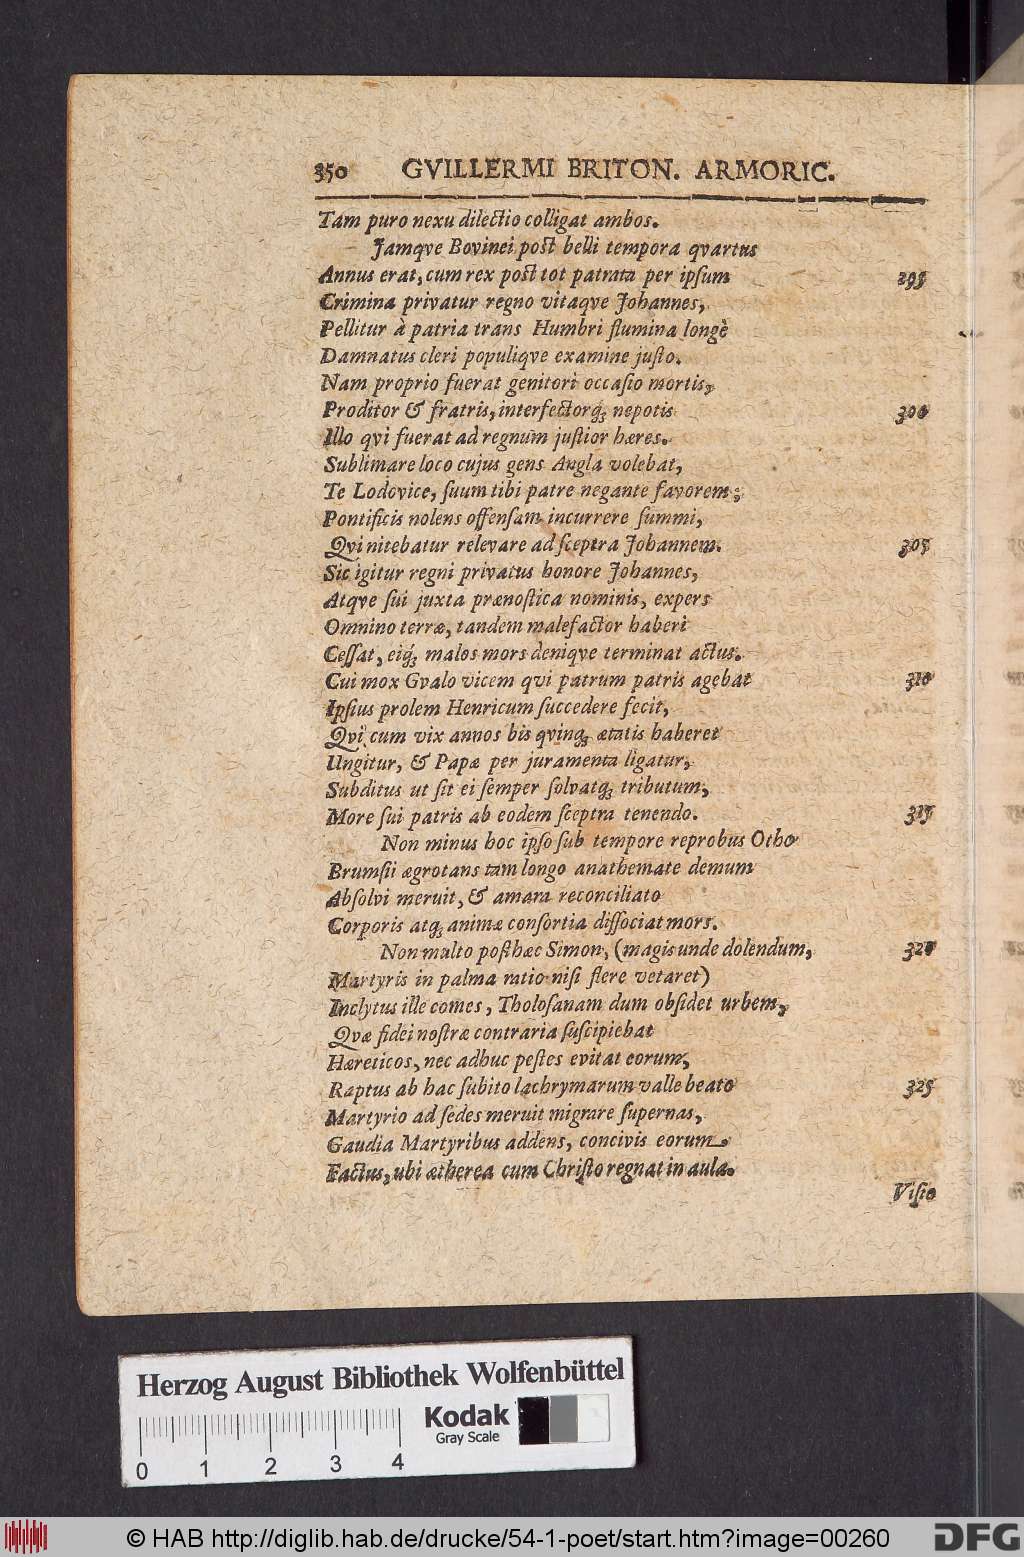 350 GVILLERMI BRITON. ARMORIC.
Tam puro nexu dilectio colligat ambos.
Jamqve Bovinei post belli tempora qvartus
Annus erat, cum rex post tot patrata per ipſum 295
Crimina privatur regno vitaqve Johannes,
Pellitur à patria trans Humbri flumina longè
Damnatus cleri populiqve examine juſto.
Nam proprio fuerat genitori occaſio mortis,
Proditor & fratris, interfectorq́; nepotis 300
Illo qvi fuerat ad regnum juſtior hæres.
Sublimare loco cujus gens Angla volebat,
Te Lodovice, ſuum tibi patre negante favorem;
Pontificis nolens offenſam incurrere ſummi,
Qvi nitebatur relevare ad ſceptra Johannem. 305
Sic igitur regni privatus honore Johannes,
Atqve ſui juxta prænoſtica nominis, expers
Omnino terræ, tandem malefactor haberi
Ceſſat, eiq́; malos mors deniqve terminat actus.
Cui mox Gvalo vicem qvi patrum patris agebat 310
Ipſius prolem Henricum ſuccedere fecit,
Qvi cum vix annos bis qvinq; ætatis haberet
Ungitur, & Papæ per juramenta ligatur,
Subditus ut ſit ei ſemper ſolvatq; tributum,
More ſui patris ab eodem ſceptra tenendo. 315
Non minus hoc ipſo ſub tempore reprobus Otho
Brumſii ægrotans tam longo anathemate demum
Abſolvi meruit, & amara reconciliato
Corporis atq; animæ conſortia diſſociat mors.
Non multo poſt hæc Simon, (magis unde dolendum, 320
Martyris in palma ratio niſi flere vetaret)
Inclytus ille comes, Tholoſanam dum obſidet urbem,
Qvæ fidei noſtræ contraria ſuſcipiebat
Hæreticos, nec adhuc peſtes evitat eorum,
Raptus ab hac ſubito lachrymarum valle beato 325
Martyrio ad ſedes meruit migrare ſupernas,
Gaudia Martyribus addens, concivis eorum
Factus, ubi ætherea cum Chriſto regnat in aula.
Viſio
Herzog August Bibliothek Wolfenbüttel
Kodak
Gray Scale
0 1 2 3 4
© HAB http://diglib.hab.de/drucke/54-1-poet/start.htm?image=00260
DFG